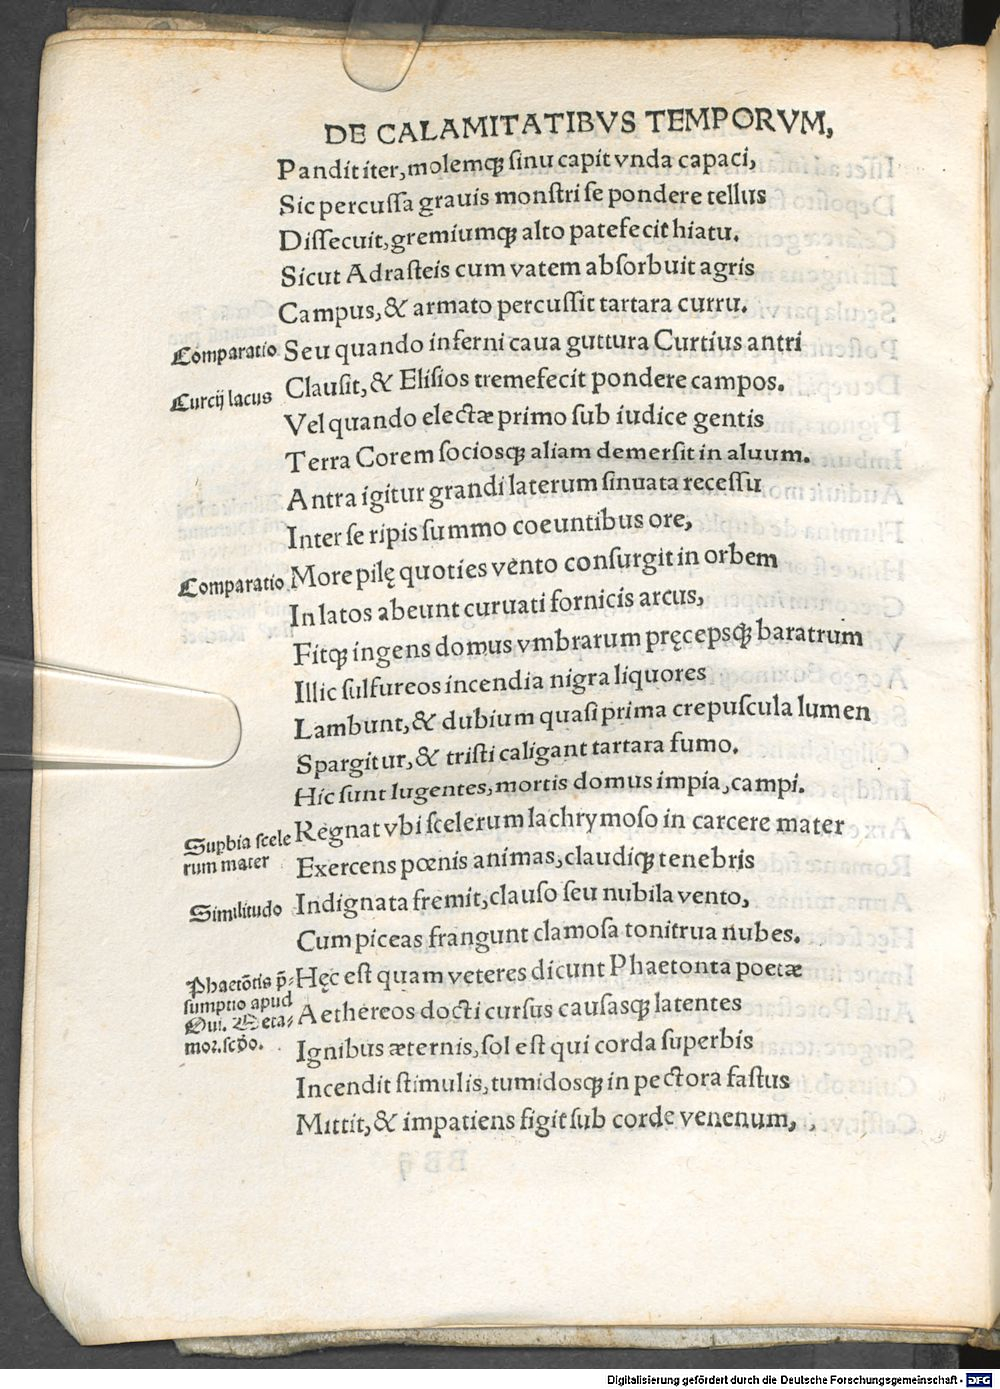 DE CALAMITATIBVS TEMPORVM,
Pandit iter, molemqꝫ sinu capit vnda capaci,
Sic percussa grauis monstri se pondere tellus
Dissecuit, gremiumqꝫ alto patefecit hiatu.
Sicut Adrasteis cum vatem absorbuit agris
Campus, & armato percussit tartara curru.
Comparatio
Seu quando inferni caua guttura Curtius antri
Curcij lacus
Clausit, & Elisios tremefecit pondere campos.
Vel quando electæ primo sub iudice gentis
Terra Corem sociosqꝫ aliam demersit in aluum.
Antra igitur grandi laterum sinuata recessu
Inter se ripis summo coeuntibus ore,
Comparatio
More pilę quoties vēto consurgit in orbem
In latos abeunt curuati fornicis arcus,
Fitqꝫ ingens domus vmbrarum pręcepsqꝫ baratrum
Illic sulfureos incendia nigra liquores
Lambunt, & dubium quasi prima crepuscula lumen
Spargitur, & tristi caligant tartara fumo.
Hic sunt lugentes, mortis domus impia, campi.
Supbia scele
rum mater
Regnat vbi scelerum lachrymoso in carcere mater
Exercens pœnis animas, claudiqꝫ tenebris
Similitudo
Indignata fremit, clauso seu nubila vento,
Cum piceas frangunt clamosa tonitrua nubes.
Phaetōtis p̄-
sumptio apud
Oui. Meta-
mor. scd̄o.
Hęc est quam veteres dicunt Phaetonta poetæ
Aethereos docti cursus causasqꝫ latentes
Ignibus æternis, sol est qui corda superbis
Incendit stimulis, tumidosqꝫ in pectora fastus
Mittit, & impatiens figit sub corde venenum,
Digitalisierung gefördert durch die Deutsche Forschungsgemeinschaft - DFG